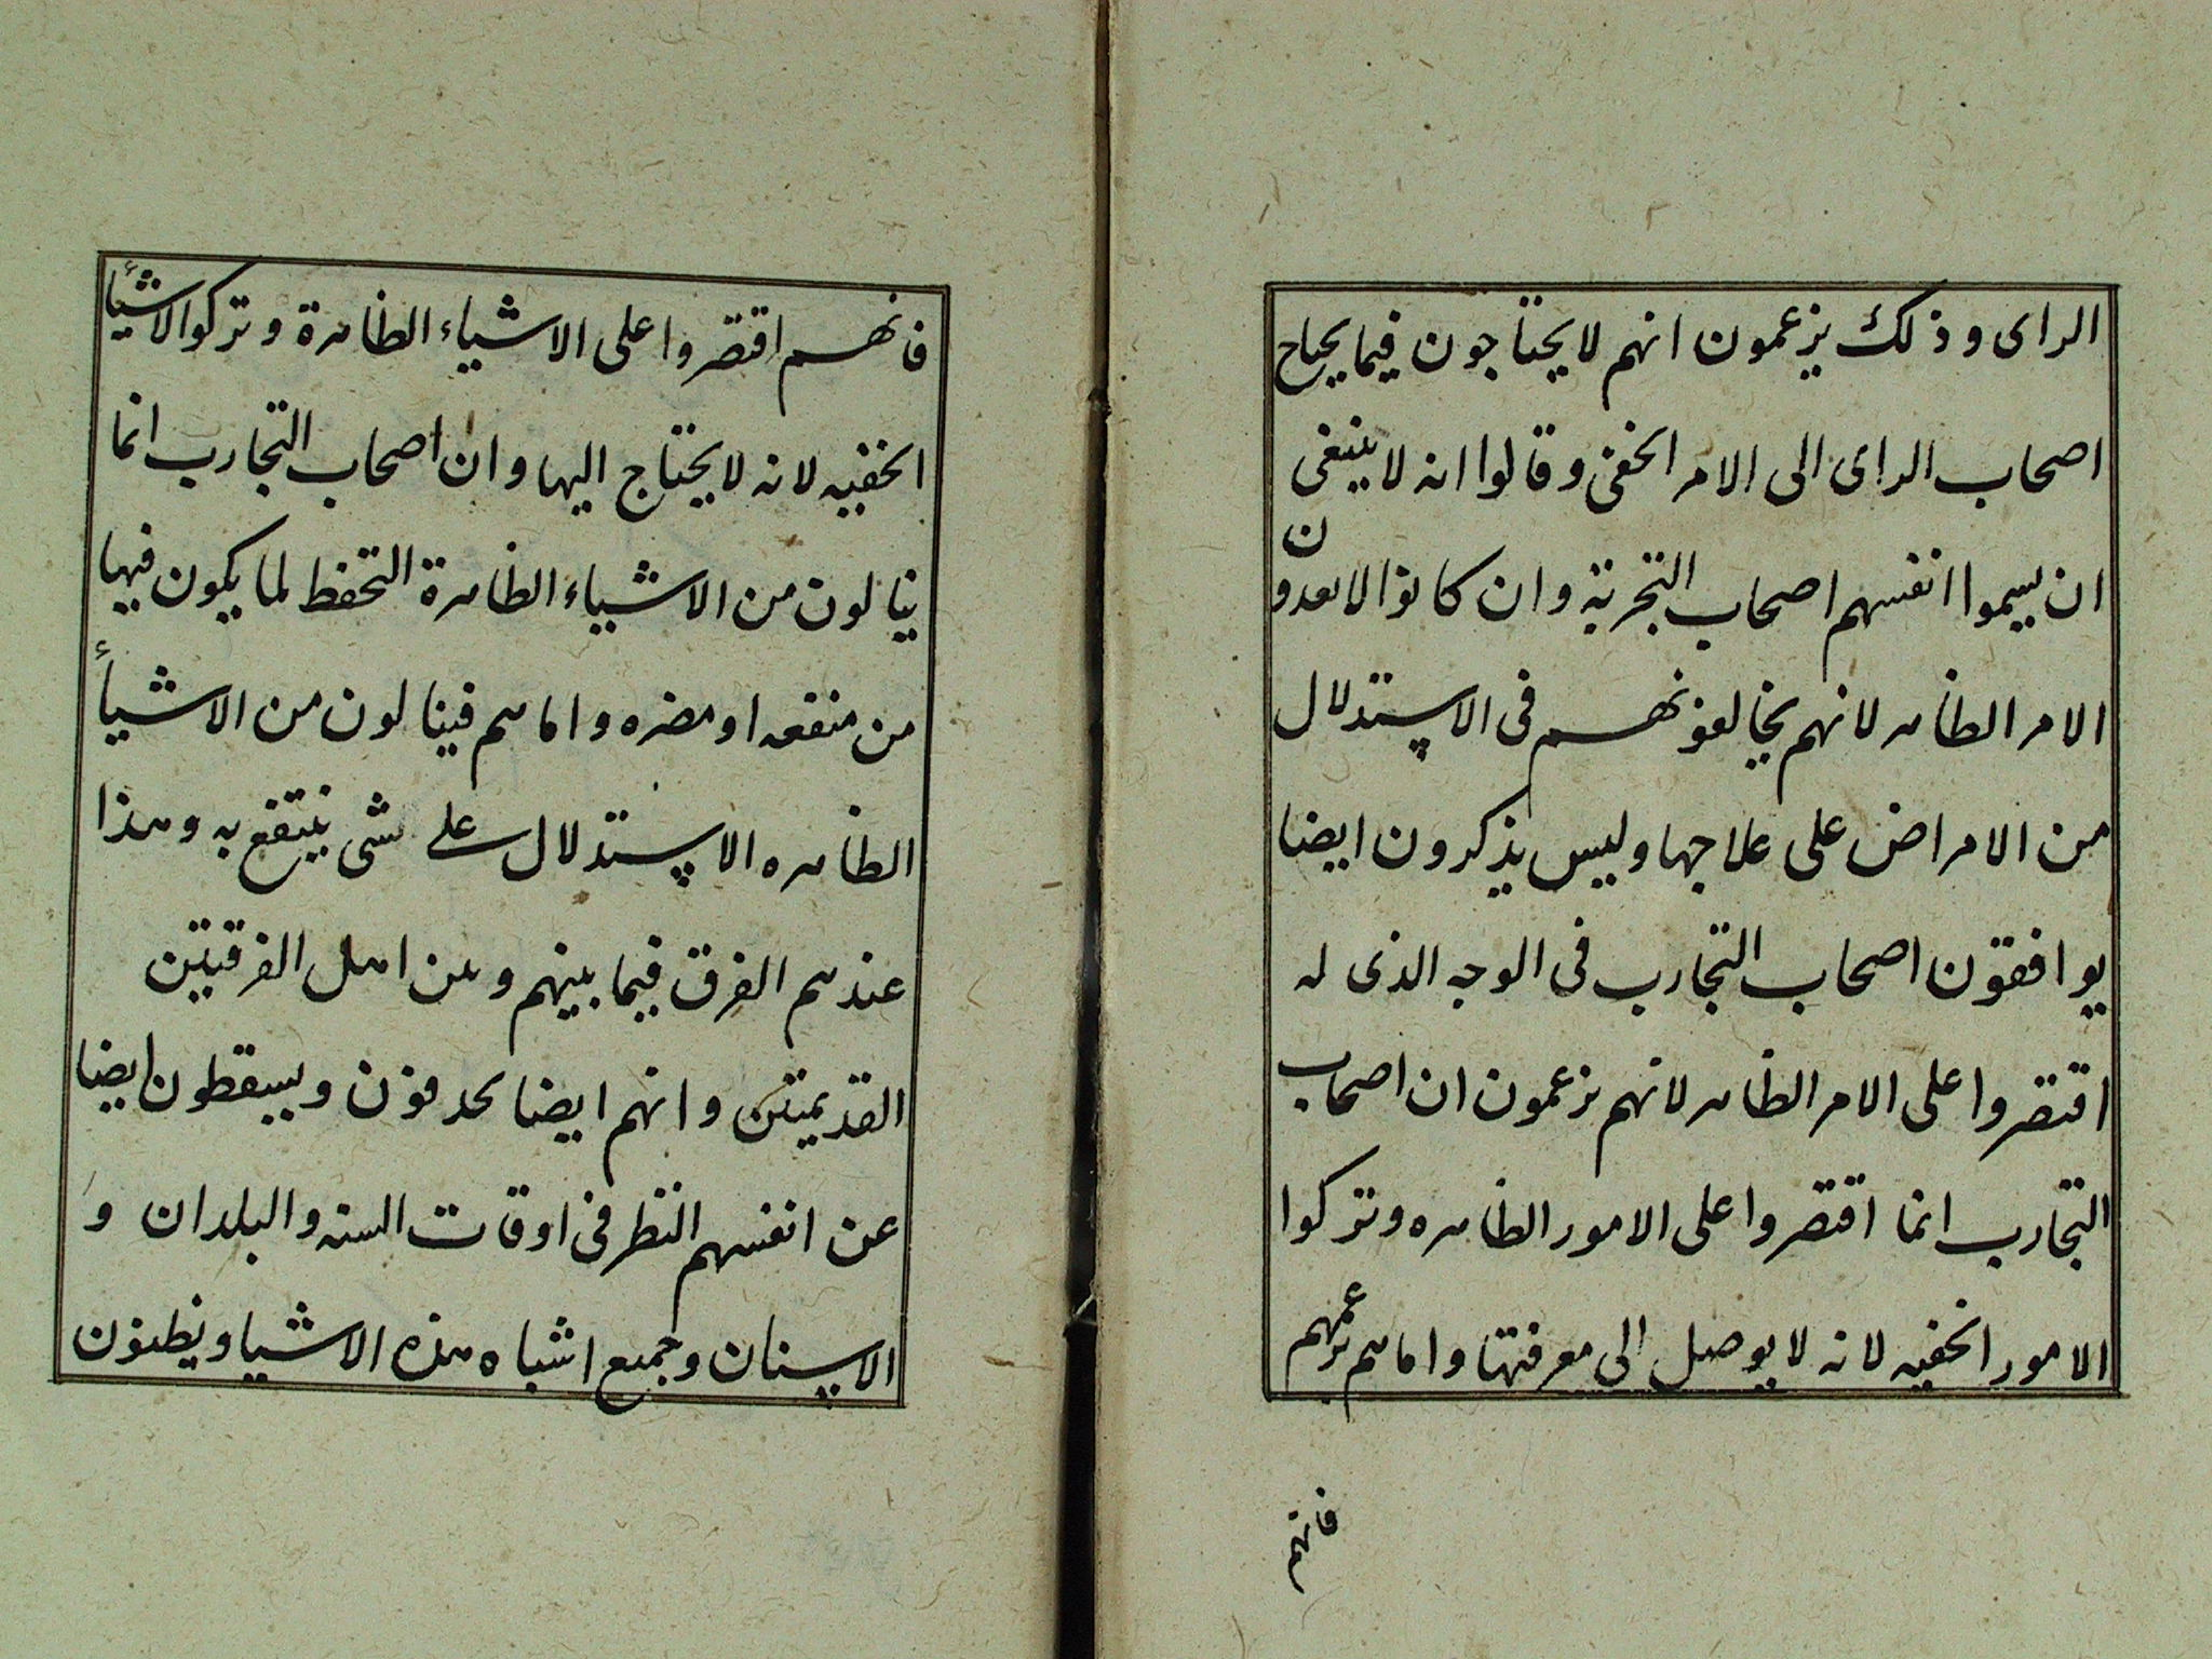 الراى وذلك يزعمون انهم لا يحتاجون فيما يحتاج
اصحاب الراى الى الامر الخفى وقالوا انه لا ينبغى
ان يسموا انفسهم اصحاب التجربة وان كانوا لا يعدون
الامر الظاهر لانهم يخالفونهم فى الاستدلال
من الامراض على علاجها وليس يذكرون ايضا
يوافقون اصحاب التجارب فى الوجه الذى له
اقتصروا على الامر الظاهر لانهم يزعمون ان اصحاب
التجارب انما اقتصروا على الامور الظاهره وتركوا
الامور الخفيه لانه لا يوصل الى معرفتها واما هم بزعمهم
فانهم
فانهم اقتصروا على الاشياء الظاهرة وتركوا الاشياء
الخفيه لانه لا يحتاج اليها وان اصحاب التجارب انما
ينالون من الاشياء الظاهرة التحفظ لما يكون فيها
من منفعه او مضره واما هم فينالون من الاشياء
الظاهره الاستدلال على شى ينتفع به وهذا
عندهم الفرق فيما بينهم وبين اهل الفرقتين
القديمتين وانهم ايضا يحدفون ويسقطون ايضا
عن انفسهم النظر فى اوقات السنه والبلدان و
الاسنان وجميع اشباه هذه الاشيا ويظنون